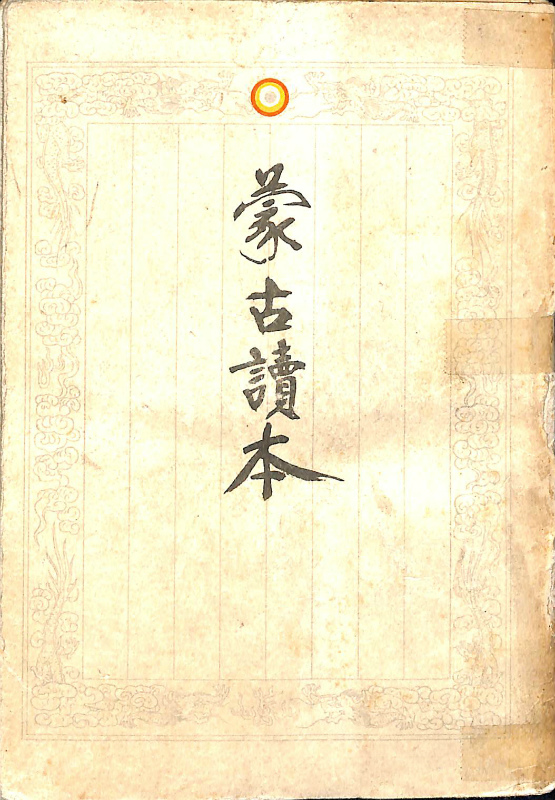 蒙古讀本